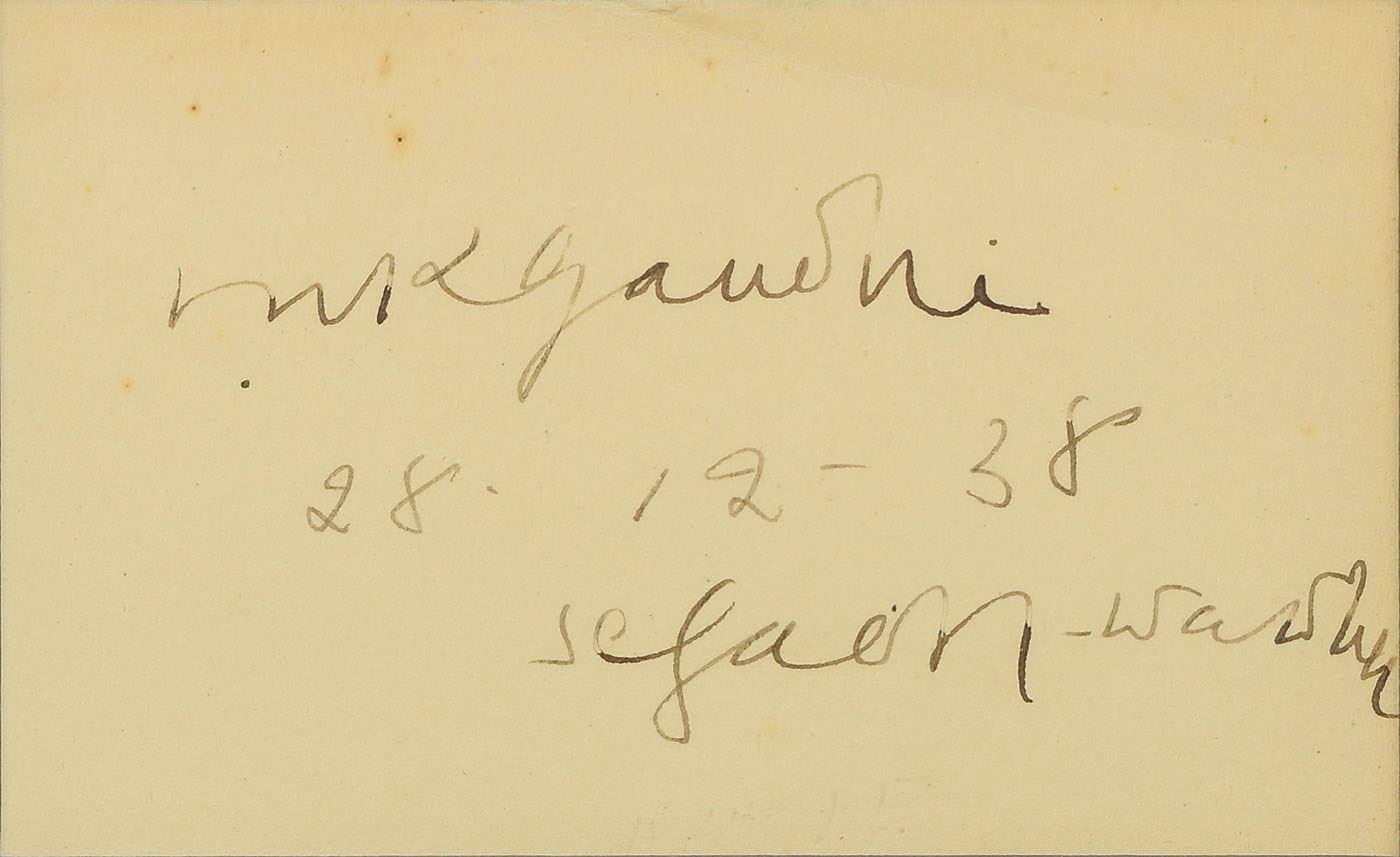 mkgandhi
28. 12 - 38
segaon - wardha